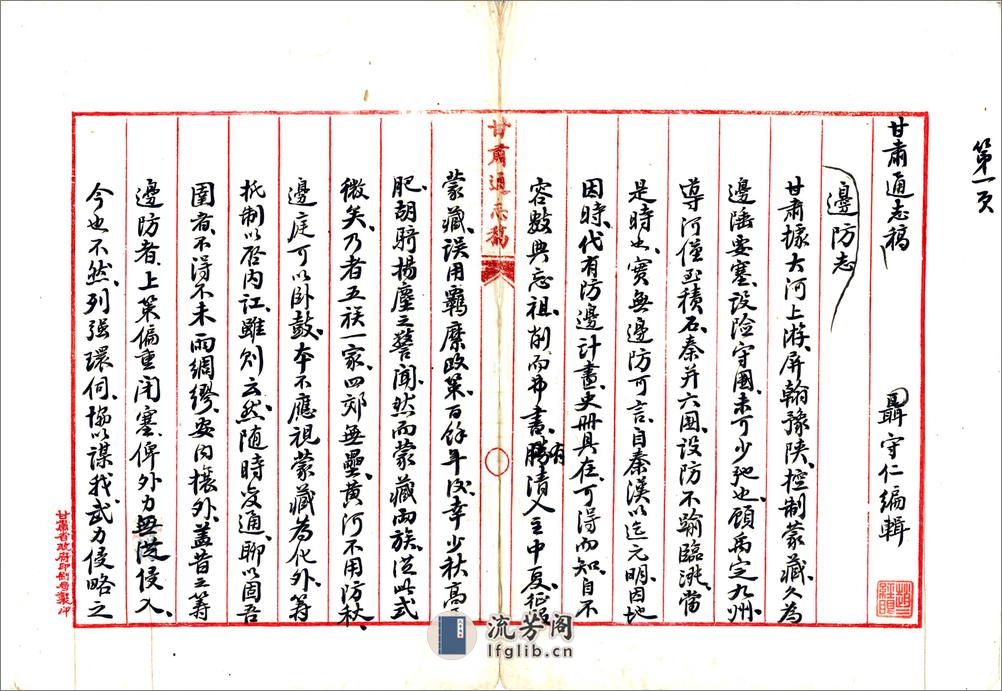 第一页
甘肅通志稿
聶守仁編輯
邊防志
甘肅據大河上游、屏翰豫陝、控制蒙藏、久為
邊陲要塞、設險守國、未可少弛也、顧禹定九州
導河僅至積石、秦并六國、設防不踰臨洮、當
是時也、實無邊防可言、自秦漢以迄元明、因地
因時、代有防邊計畫、史冊具在、可得而知、自不
容數典忘祖、削而弗書、有清入主中夏、征
甘肅通志稿
蒙藏、誤用羈縻政策、百餘年後、幸少秋高
肥、胡騎揚塵之警聞、然而蒙藏兩族、從此式
微矣、乃者五族一家、四郊無壘、黃河不用防秋、
邊庭可以臥鼓、本不應視蒙藏為化外、籌
抵制以啓內訌、雖則云然、隨時變通、聊以固吾
圉者、不得不未雨綢繆、安內攘外、蓋昔之籌
邊防者、上策偏重閉塞、俾外力無從侵入、
今也不然、列强環伺、協以謀我、武力侵略之
甘肅省政府印刷局製印
流芳阁
lfglib.cn